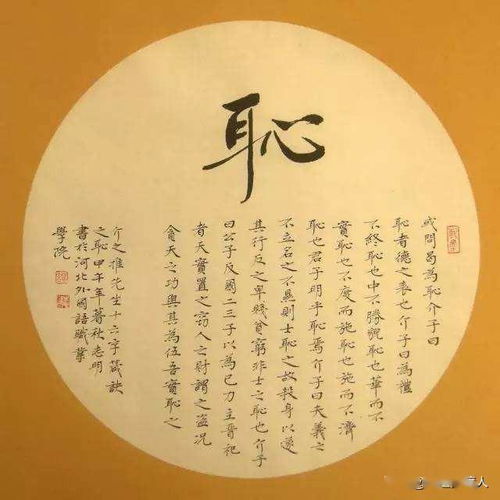 恥
或問曷為恥介子曰
恥者德之喪也介子曰為禮
不終恥也中不勝貌恥也華而不
實恥也不度而施恥也施而不濟
恥也君子明乎恥焉介子曰夫義之
不立名之不顯則士恥之故殺身以遂
其行反之卑賤貧窮非士之恥也介子
曰公子反國二三子以為己力主晉祀
者天實置之竊人之財謂之盜況
貪天之功與其為伍吾實恥之
介之推先生十六字箴訣
之恥甲午年暮秋志明
書於河北外國語職業
學院
人